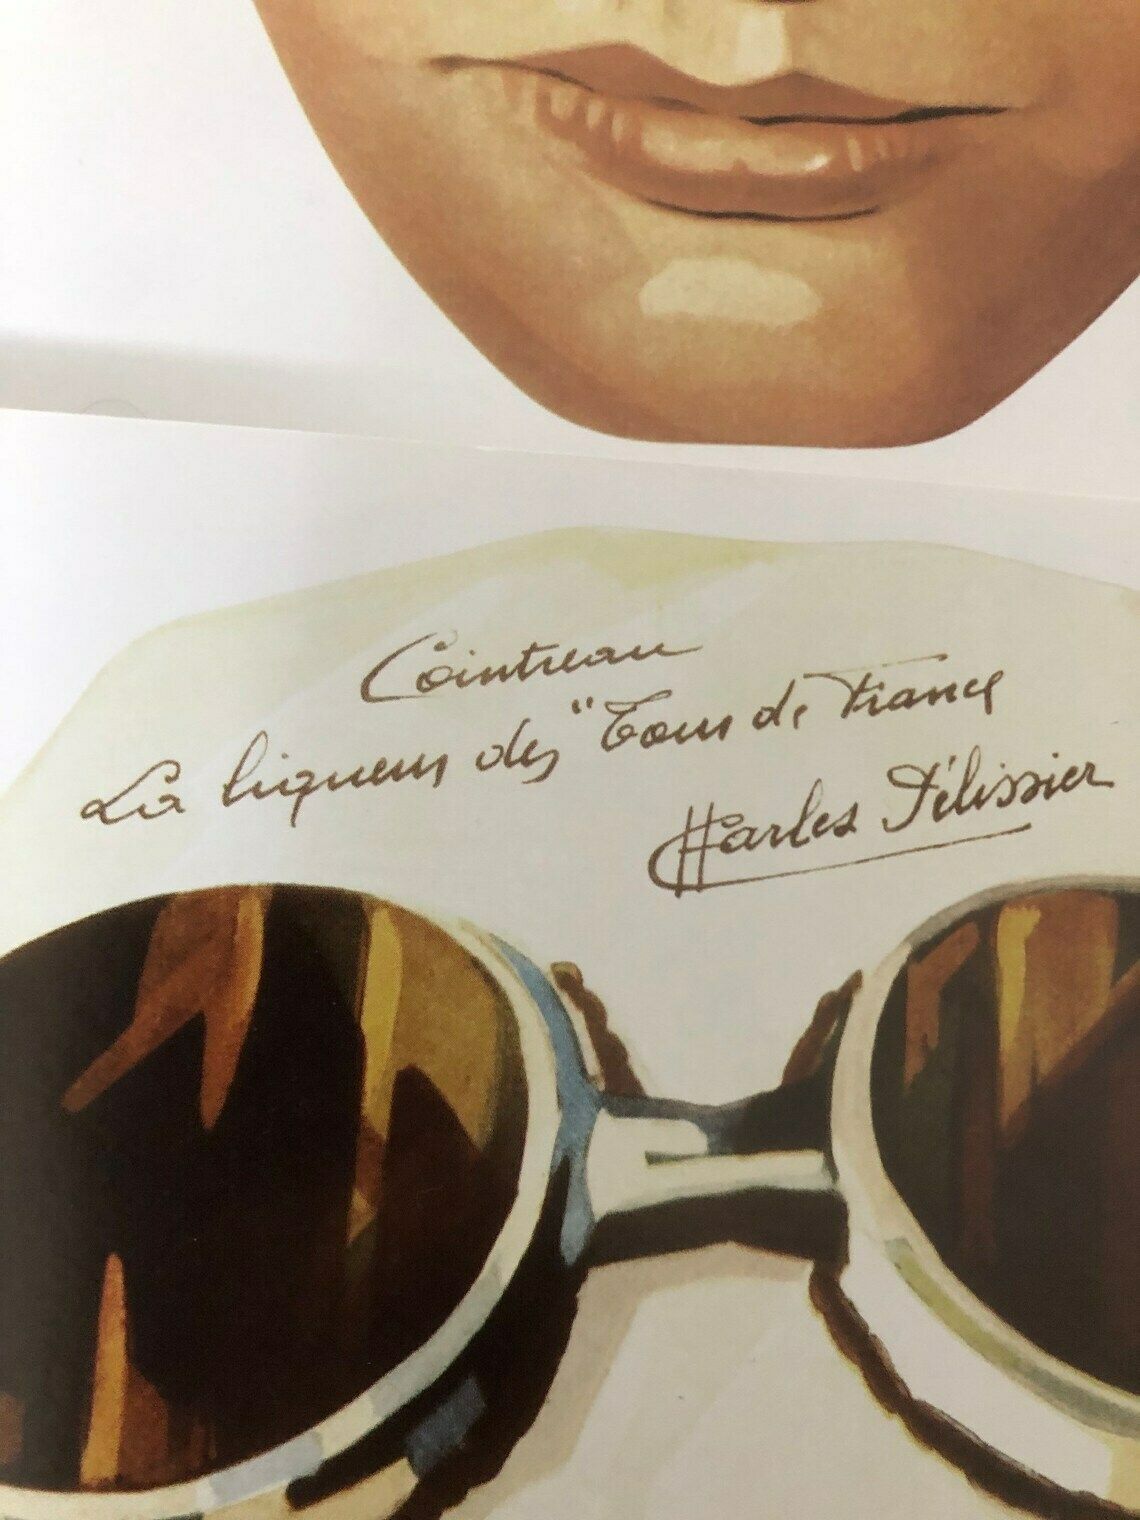 Cointreau
La liqueur des "Tour de France
Charles Pélissier